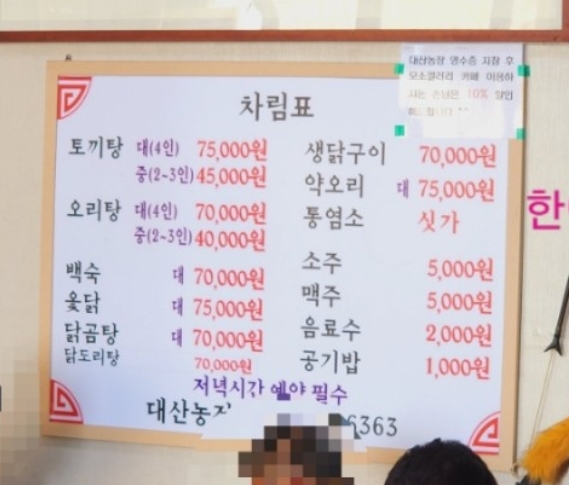 대산농장 영수증 지참 후
모소갤러리 카페 이용하
시는 손님은 10% 할인
해드립니다 ^^
차림표
토끼탕 대(4인) 75,000원
중(2~3인) 45,000원
오리탕 대(4인) 70,000원
중(2~3인) 40,000원
백숙 대 70,000원
옻닭 대 75,000원
닭곰탕 대 70,000원
닭도리탕 70,000원
생닭구이 70,000원
약오리 대 75,000원
통염소 싯가
소주 5,000원
맥주 5,000원
음료수 2,000원
공기밥 1,000원
저녁시간 예약 필수
대산농장 6363
한